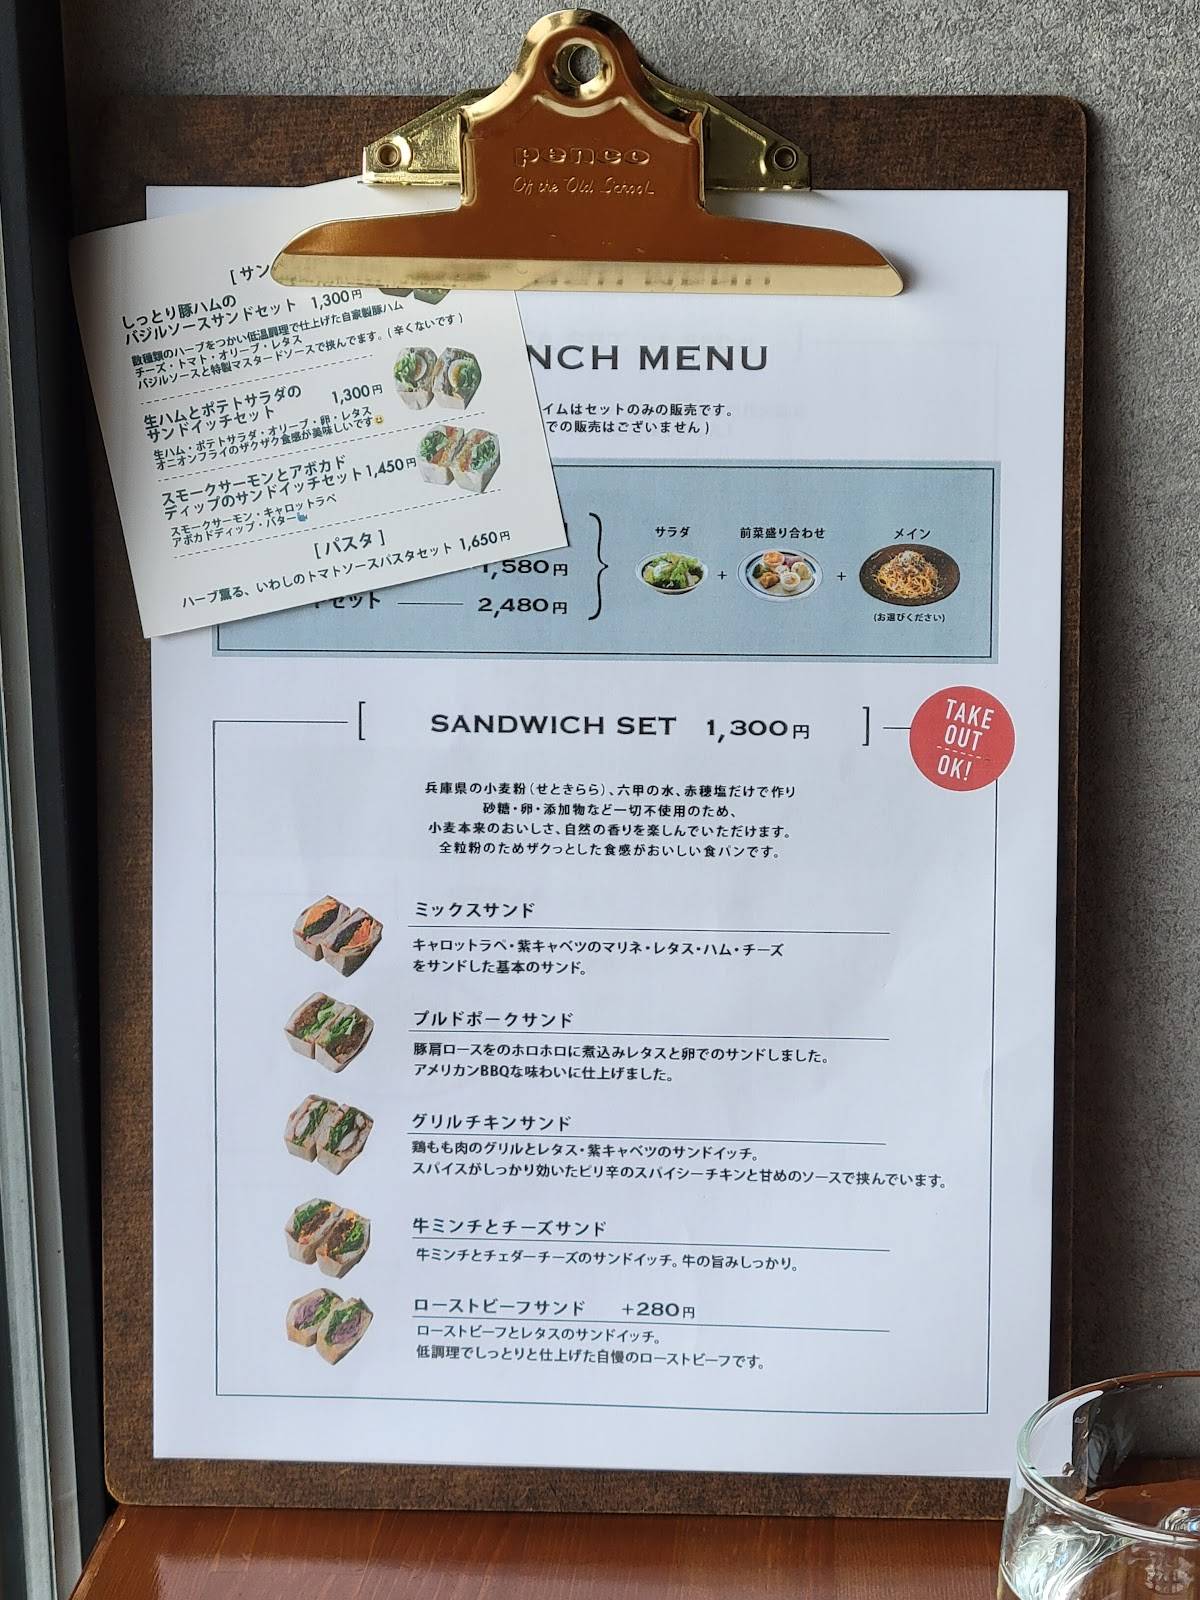 penco
Off the Old School
[ サン
しっとり豚ハムの
バジルソースサンドセット 1,300円
数種類のハーブをつかい低温調理で仕上げた自家製豚ハム
チーズ・トマト・オリーブ・レタス
バジルソースと特製マスタードソースで挟んでます。( 辛くないです )
生ハムとポテトサラダの
サンドイッチセット 1,300円
生ハム・ポテトサラダ・オリーブ・卵・レタス
オニオンフライのザクザク食感が美味しいです😃
スモークサーモンとアボカド
ディップのサンドイッチセット1,450円
スモークサーモン・キャロットラペ
アボカドディップ・バター🐟
[ パスタ ]
ハーブ薫る、いわしのトマトソースパスタセット 1,650円
NCH MENU
イムはセットのみの販売です。
での販売はございません )
1,580円
セット 2,480円
サラダ
+
前菜盛り合わせ
+
メイン
(お選びください)
[ SANDWICH SET 1,300円 ]
TAKE
OUT
OK!
兵庫県の小麦粉（せときらら）、六甲の水、赤穂塩だけで作り
砂糖・卵・添加物など一切不使用のため、
小麦本来のおいしさ、自然の香りを楽しんでいただけます。
全粒粉のためザクっとした食感がおいしい食パンです。
ミックスサンド
キャロットラペ・紫キャベツのマリネ・レタス・ハム・チーズ
をサンドした基本のサンド。
プルドポークサンド
豚肩ロースをのホロホロに煮込みレタスと卵でのサンドしました。
アメリカンBBQな味わいに仕上げました。
グリルチキンサンド
鶏もも肉のグリルとレタス・紫キャベツのサンドイッチ。
スパイスがしっかり効いたピリ辛のスパイシーチキンと甘めのソースで挟んでいます。
牛ミンチとチーズサンド
牛ミンチとチェダーチーズのサンドイッチ。牛の旨みしっかり。
ローストビーフサンド +280円
ローストビーフとレタスのサンドイッチ。
低調理でしっとりと仕上げた自慢のローストビーフです。